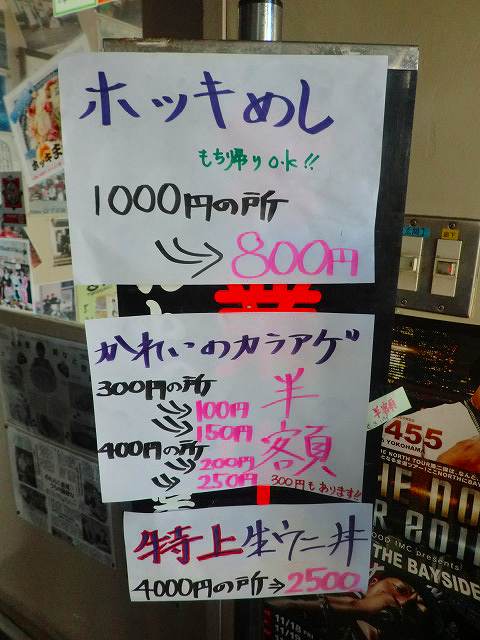 ホッキめし
もち帰りo.k!!
1000円の所
800円
業
かれいのカラアゲ
300円の所
100円
150円
400円の所
200円
250円
半額
300円もあります!!
特上生ウニ丼
4000円の所→2500
455
YOKOHAMA
IMC presents
THE BAYSIDE
11/18